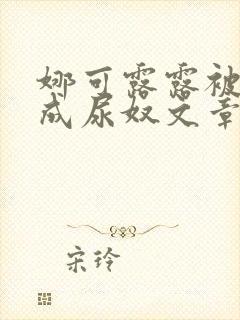 娜可露露被
成尿奴文章
宋玲